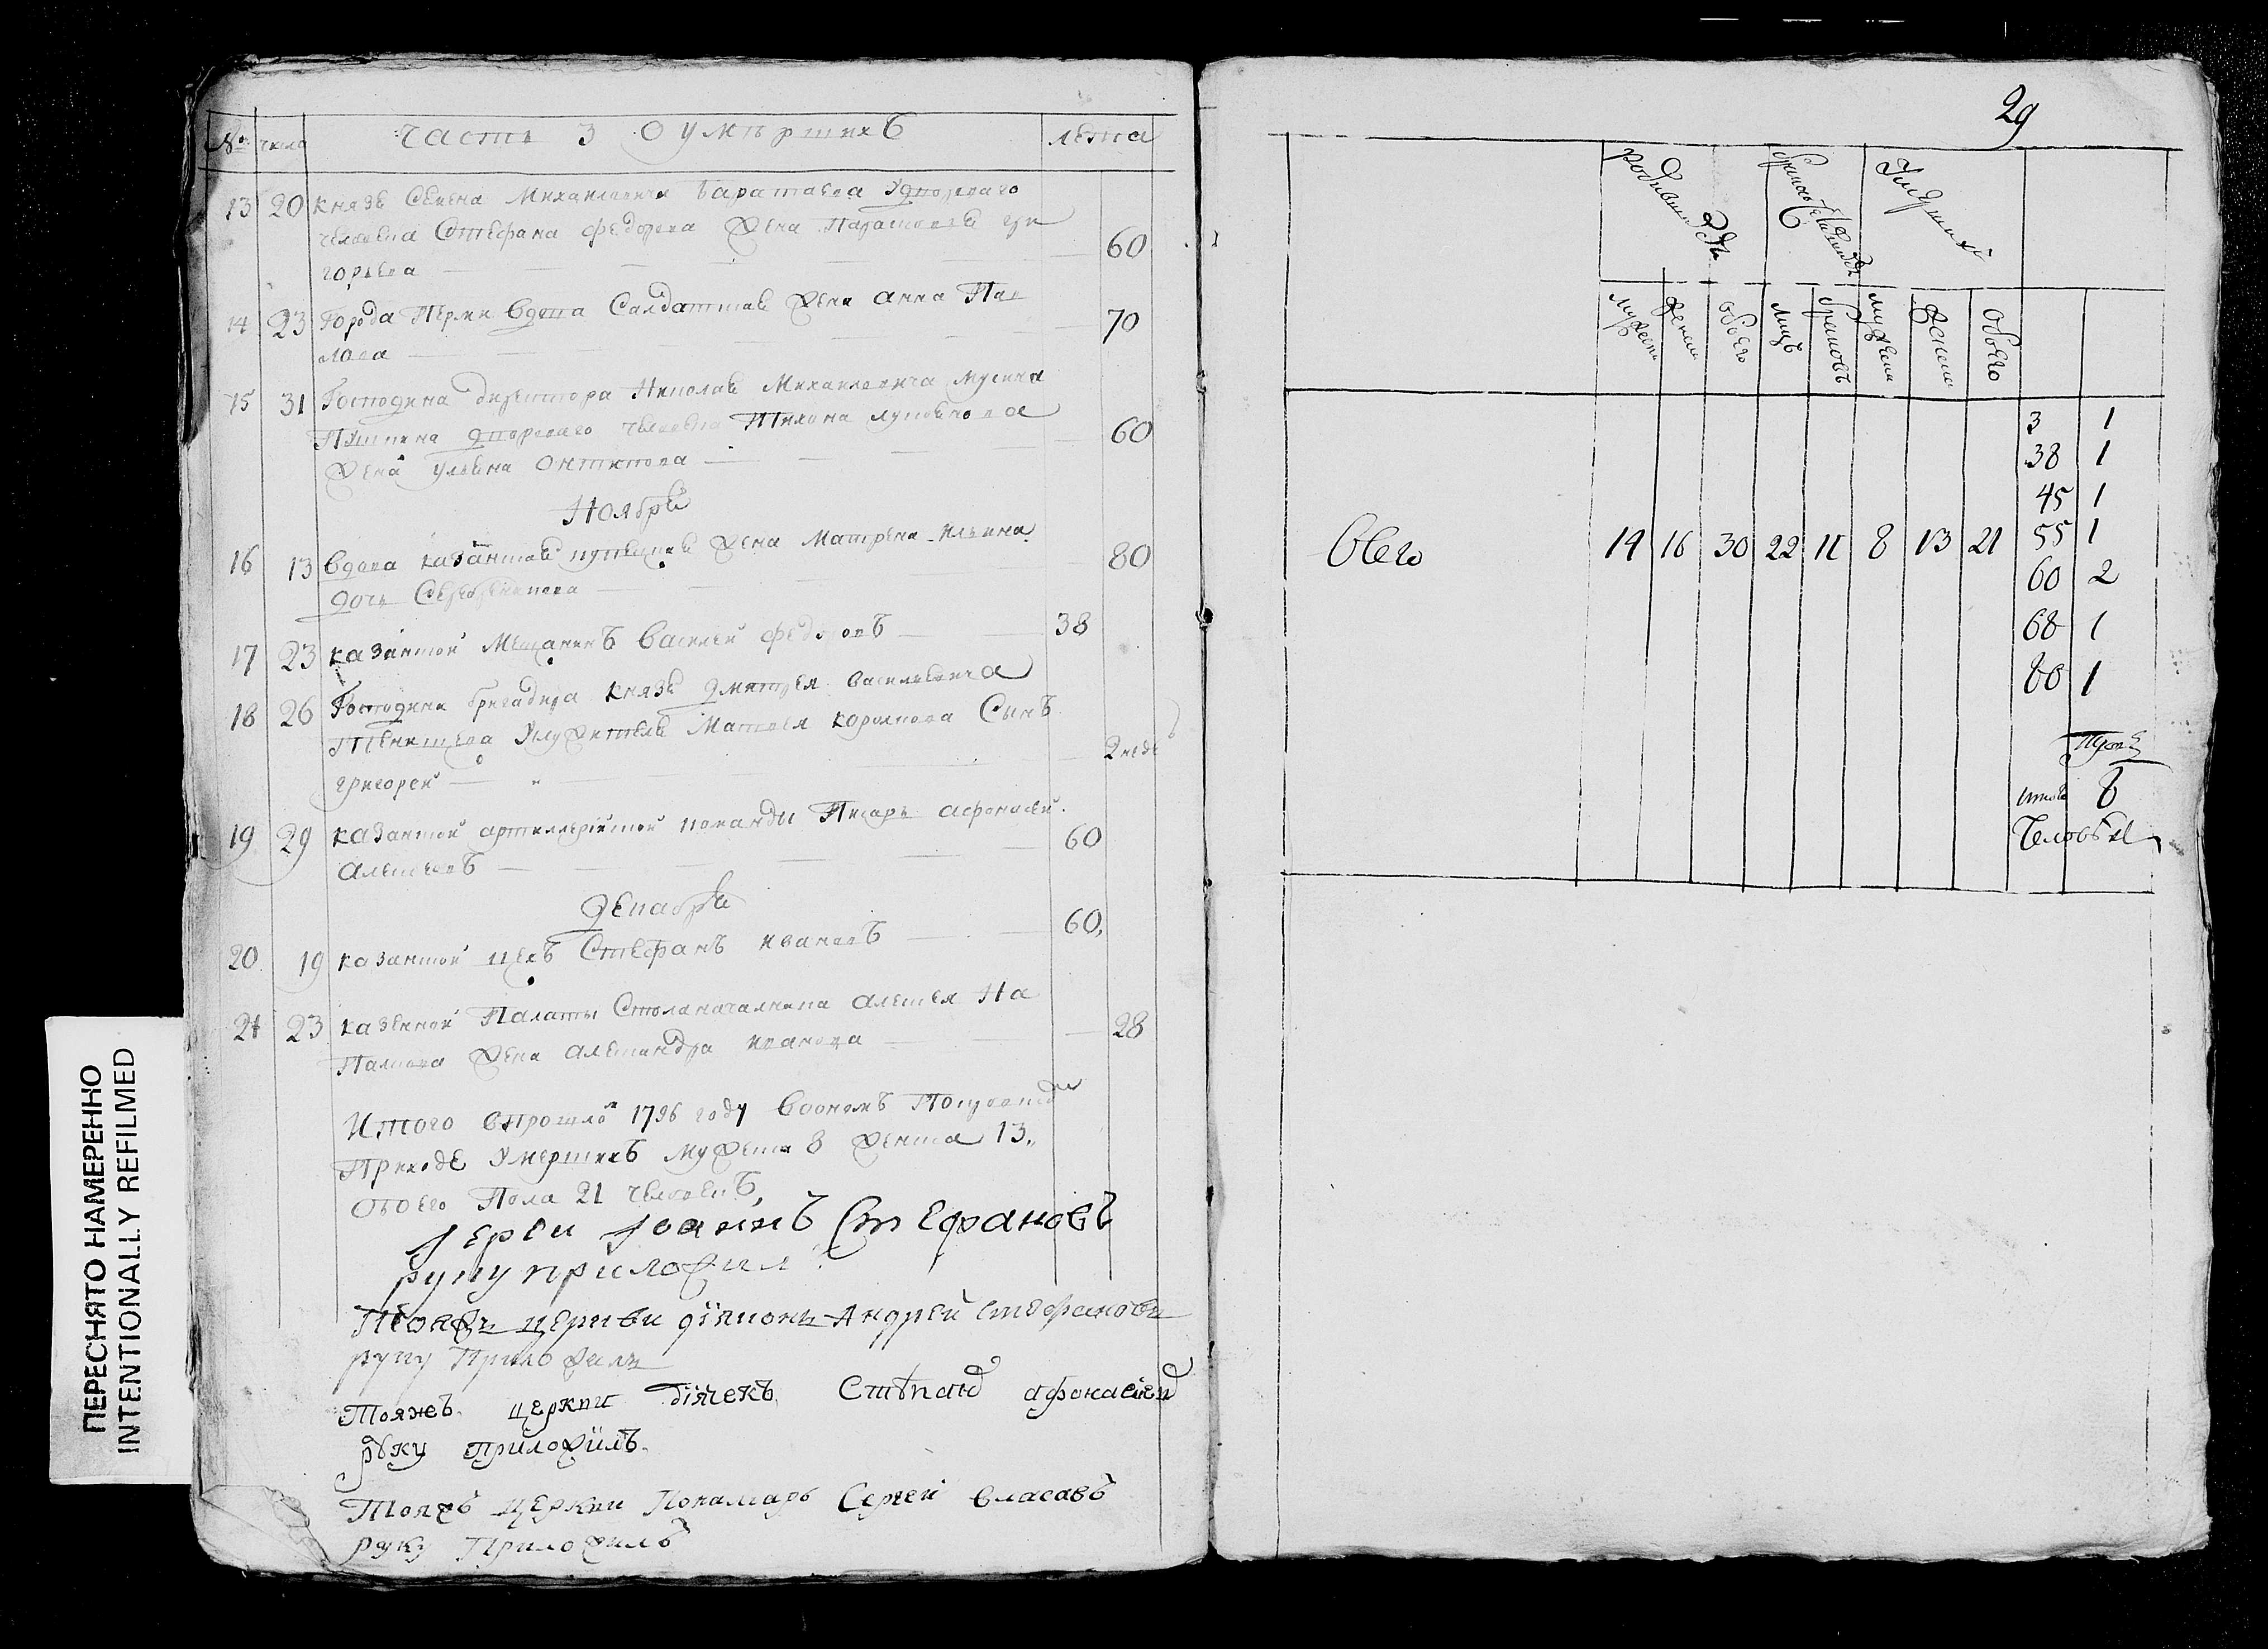 № числа Часть 3 О умѣршихъ лѣта
13 20 Князь Семена Михаиловича Баратаева Удворового
человека Стефана Федорова жена Парасковья гри
горьева 60
14 23 Города Перми вдова Салдатская жена Анна Пав
лова 70
15 31 Господина директора Николая Михаиловича Мусина
Пушкина дворового человека Тихона
жена Ульяна Онтипова 60
Ноября
16 13 вдова казанская купецкая жена Матрена Ильина
дочь Серебреникова 80
17 23 казанской Мещанинъ Василей Федоровъ 38
18 26 Господина бригадира Князь Дмитрея Васильевича
Тенишева Услужителя Матвея Сынъ
григорей 2 неде
19 29 казанской артиллерійской команды Писарь Афонасей
Алексеевъ 60
Декабря
20 19 казанской цехъ Стефанъ Ивановъ 60
21 23 казенной Палаты Столаначалника Алексея На
жена Александра Иванова 28
Итого впрошло 1796 году Вооном Покровско
Приходе Умершихъ Мужеска 8 Женска 13
Обоего Пола 21 человекъ,
Іерей Іоаннъ Стефановъ
руку приложил
Тояжъ церкви діяконъ Андрей Стефановъ
руку Приложилъ
Тояжеъ церкви дїячекъ Стѣпанъ Афонасіевъ
руку приложилъ
Тояжъ церкви Пономарь Сергей Власавъ
руку Приложилъ
29
родившихъ браковъ Умершихъ
мужеска женска обоего лицъ браковъ мужеска женска обоего
3 1
38 1
45 1
Всего 14 16 30 22 11 8 13 21 55 1
60 2
68 1
80 1
итого 8
Человѣкъ
ПЕРЕСНЯТО НАМЕРЕННО
INTENTIONALLY REFILMED